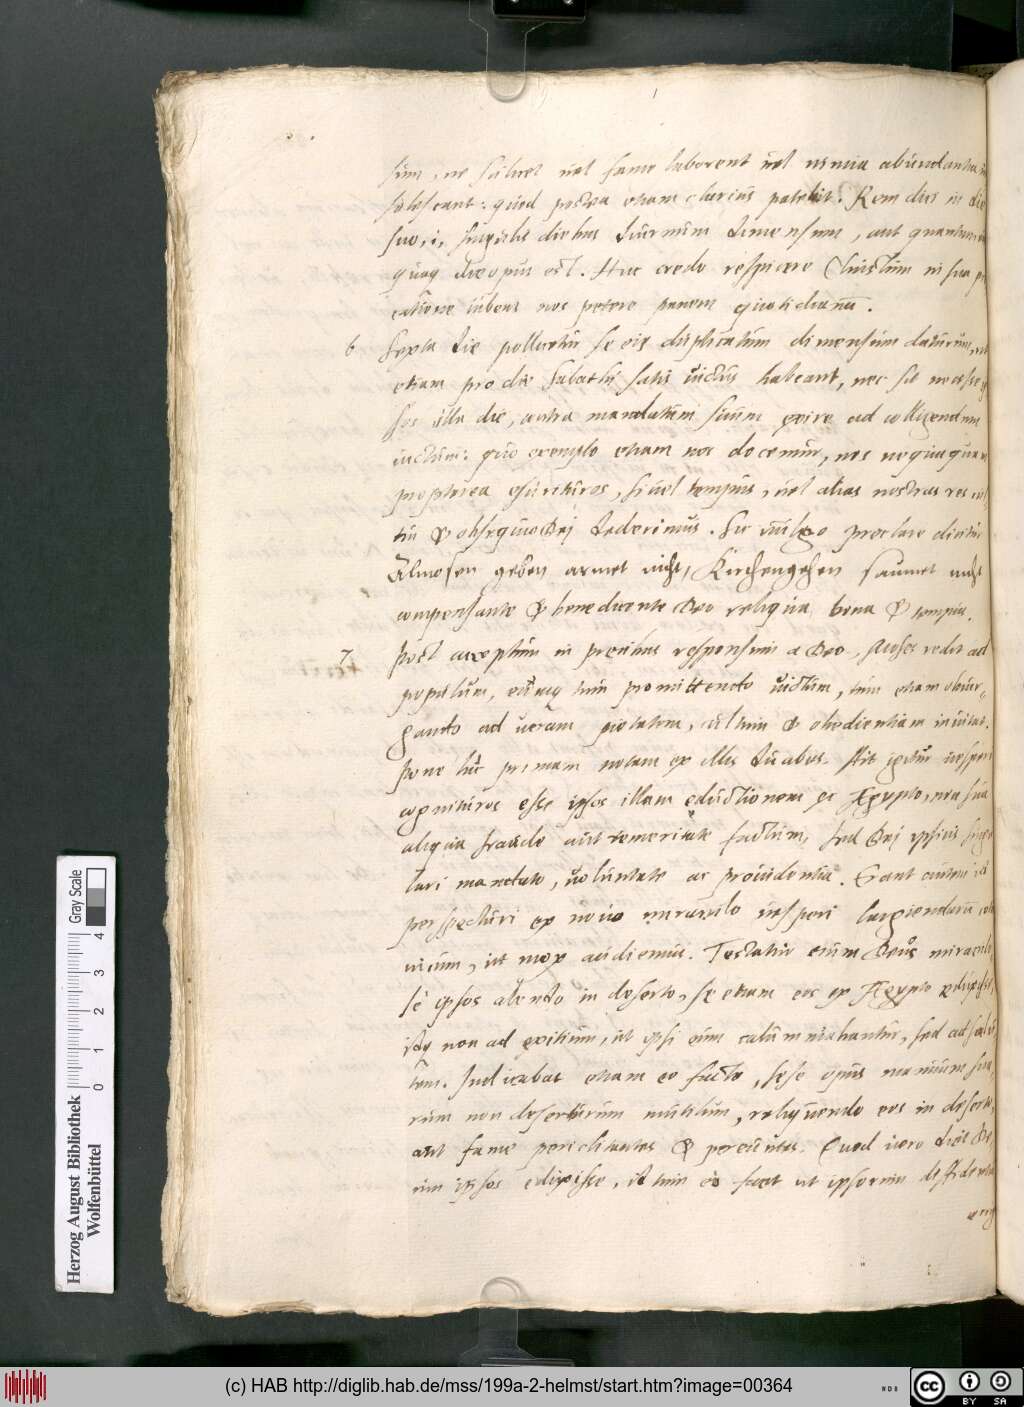 sum, ne scilicet vel fame laborent vel nimia abundantia
quod postea etiam clarius patebit. Rem diei in die
suo, i, singulis diebus suum dimensum, aut quantum
opus est. Huc credo respicere Christum in sua
iubens nos petere panem quotidianū.
6 Sexta die pollicetur se eis duplicatum dimensum daturum,
etiam pro die Sabathi satis victus habeant, nec sit necesse
illa die, contra mandatum suum exire ad colligendum
victum: quo exemplo etiam nos docemur, nos nequaquam
propterea esurituros, si vel tempus, vel alias nostras res
& obsequio Dei dederimus. Sic vulgo praeclare dicitur
Almosen geben armet nicht, Kirchengehen saumet nicht
compensante & benedicente Deo reliqua bona & tempus.
7 Post acceptum in precibus responsum a Deo, Moses redit ad
populum, eumq tum promittendo victum, tum etiam obiur-
gando ad veram pietatem, cultum & obedientiam invitat.
pone hic primam notam ex illis duabus. Ait igitur vesperi
cognituros esse ipsos illam eductionem ex Ægypto, non sua
aliqua fraude aut temeritate factum, sed Dei ipsius singu
lari mandato, voluntate ac providentia. Erant autem id
perspecturi ex novo miraculo vesperi largiendarum
ut mox audiemus. Testatur enim Deus miraculo
se ipsos alendo in deserto, se etiam eos ex Ægypto eduxisse,
idq non ad exitium, ut ipsi eum calumniabantur, sed ad salu
tem. Iudicabat etiam eo facto, sese opus manuum sua
rum non deserturum mutilum, relinquendo eos in deserto,
aut fame periclitantes & pereuntes. Quod vero dicit De
um ipsos eduxisse, id tum eo facit ut ipsorum desideria
Herzog August Bibliothek
Wolfenbüttel
0 1 2 3 4
Gray Scale
(c) HAB http://diglib.hab.de/mss/199a-2-helmst/start.htm?image=00364
CC BY SA